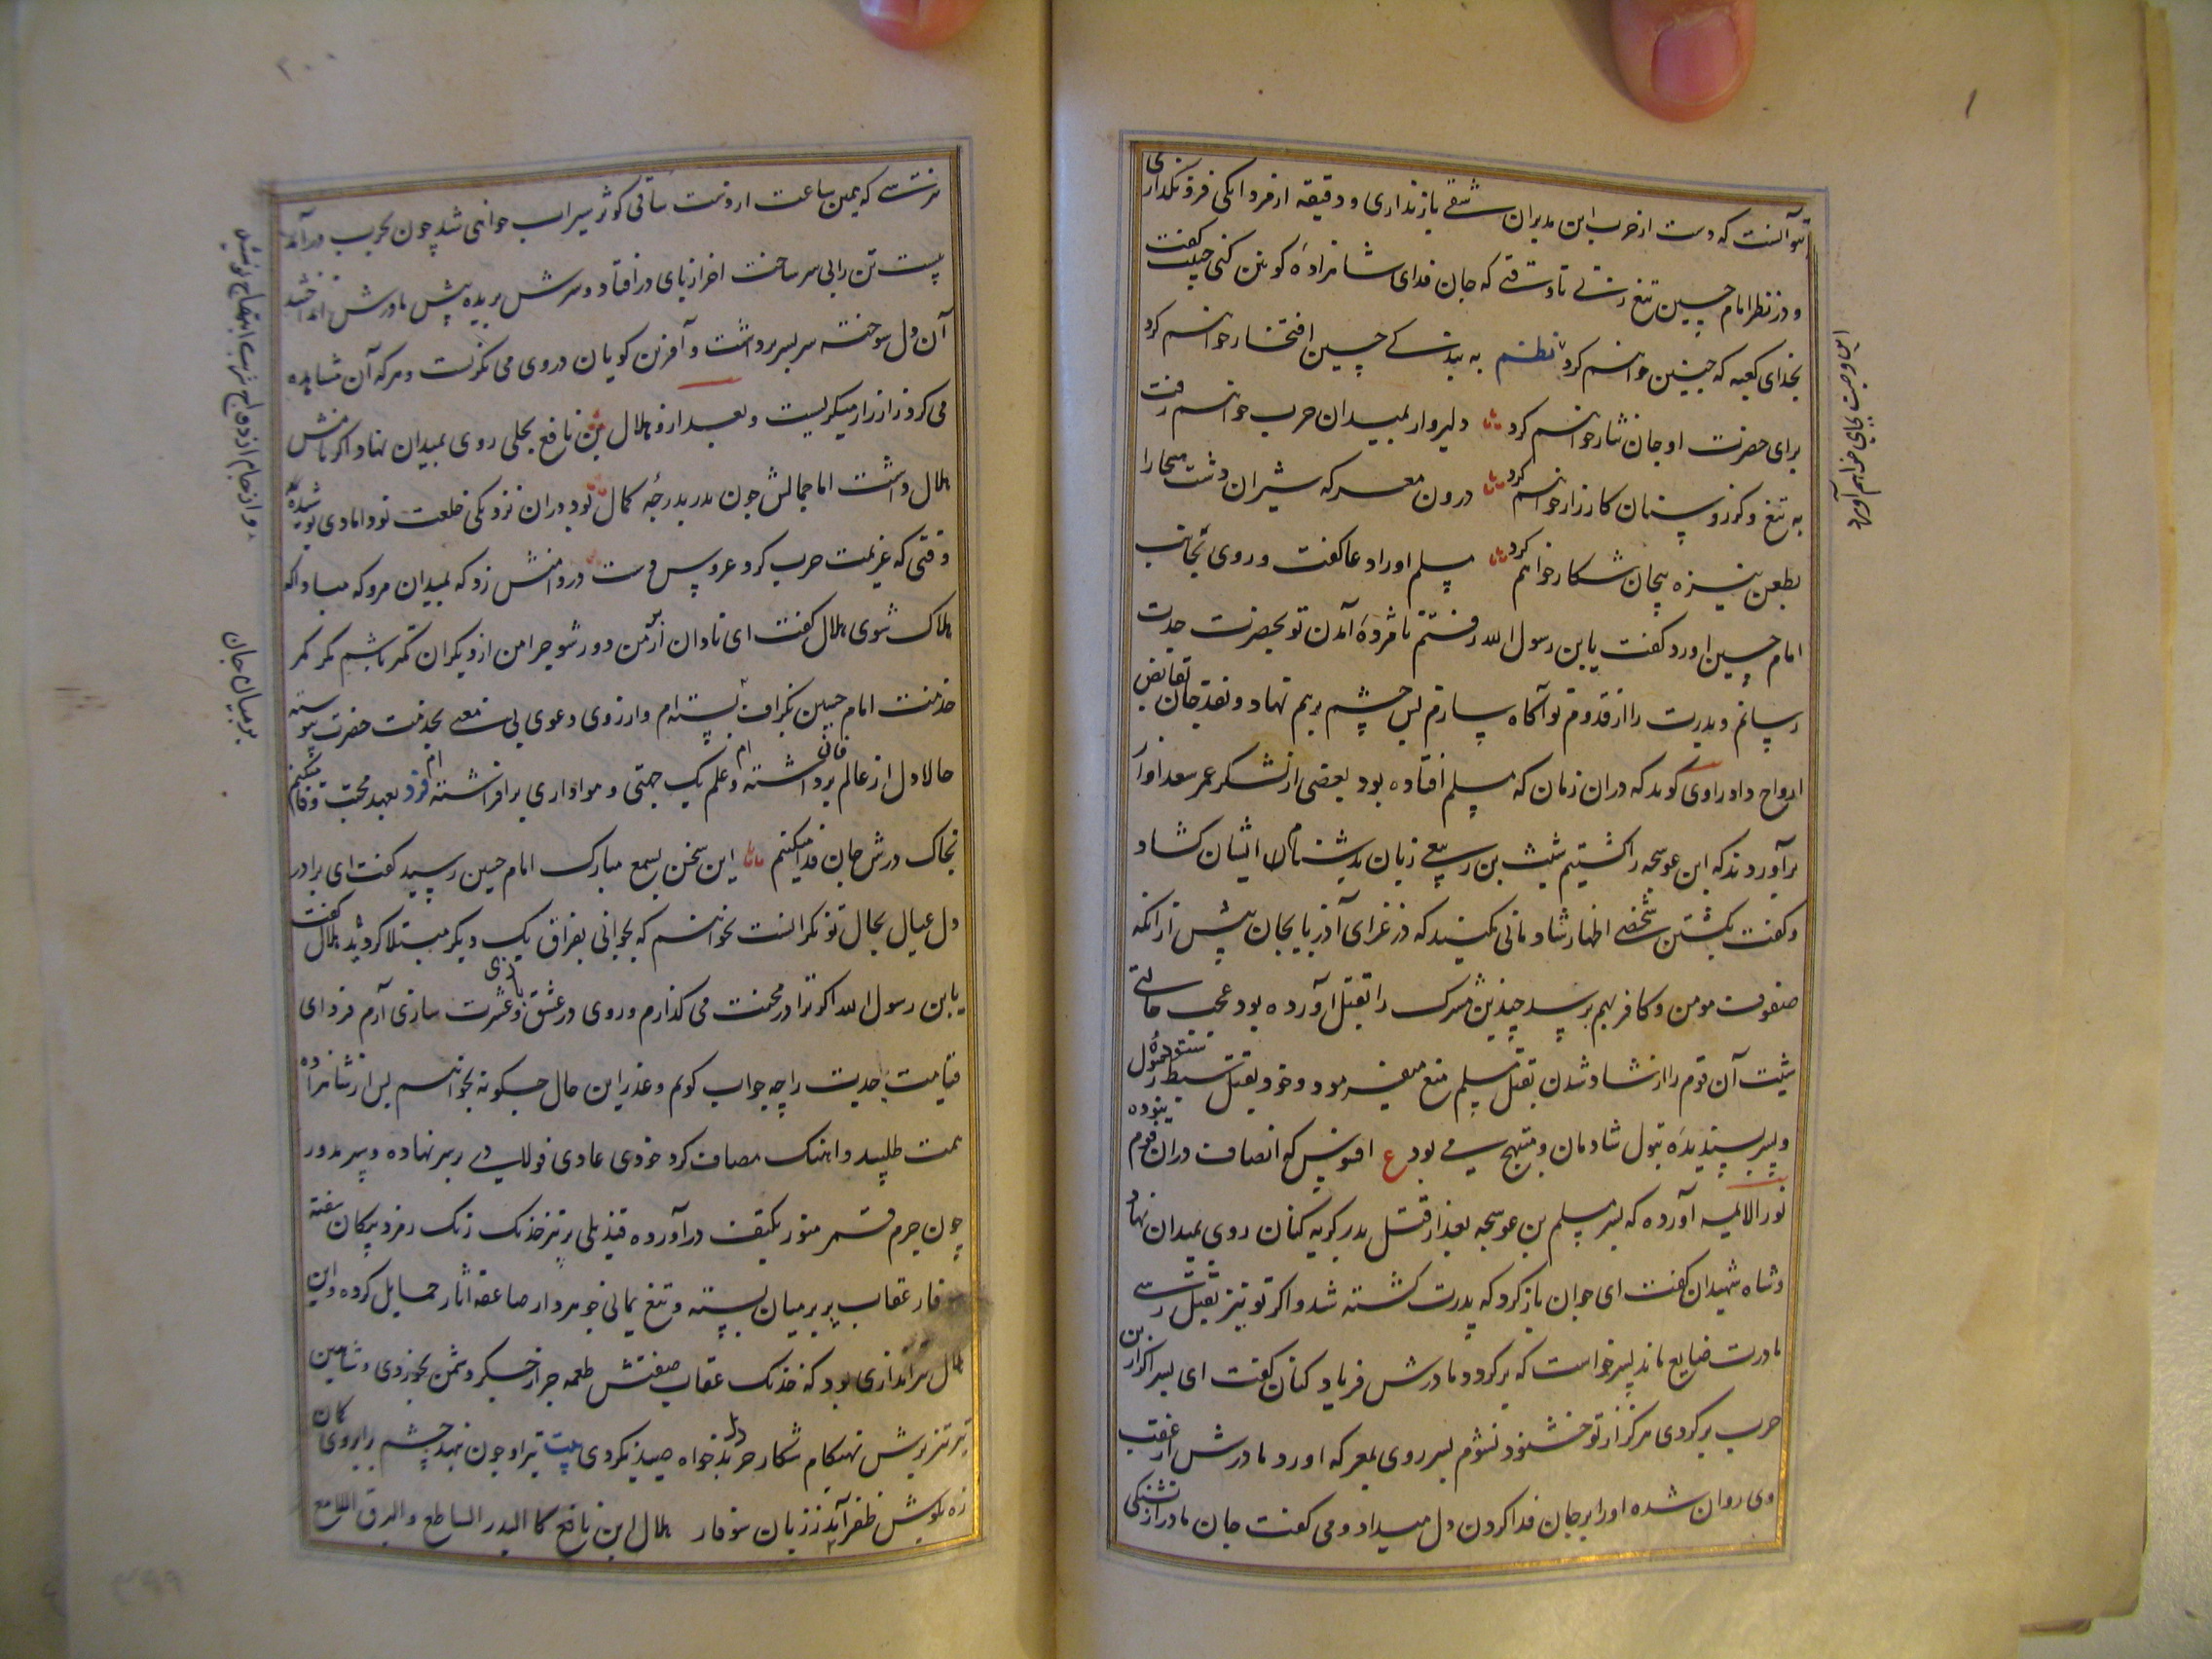 بتو آنست که دست از حرب این مدبران شقی بازنداری و دقیقه از مردانگی فرونگذاری
و در نظر امام حسین تیغ زنی تا وقتی که جان فدای شاهزاده کونین کنی حبیب گفت
بخدای کعبه که چنین خواهم کرد نظم به بندگی حسین افتخار خواهم کرد
برای حضرت او جان نثار خواهم کرد دلیروار بمیدان حرب خواهم رفت
به تیغ و گرز و سنان کارزار خواهم کرد درون معرکه شیران دشت هیجا را
بطعن نیزه پیچان شکار خواهم کرد مسلم او را دعا گفت و روی بجانب
امام حسین آورد و گفت یابن رسول الله رفتم تا مژده آمدن تو بحضرت جدت
رسانم و پدرت را از قدوم تو آگاه سازم پس چشم برهم نهاد و نقد جان بقابض
ارواح داد راوی گوید که دران زمان که مسلم افتاده بود بعضی از لشکر عمر سعد آواز
برآوردند که ابن عوسجه را کشتیم شیث بن ربعی زبان بدشنام ایشان گشاد
و گفت بکشتن شخصی اظهار شادمانی میکنید که در غزای آذربایجان پیش ازانکه
صفوف مومن و کافر بهم برسد چندین مشرک را بقتل آورده بود عجب حالتی
شیث آن قوم را از شاد شدن بقتل مسلم منع میفرمود و خود بقتل سبط ستوده رسول
و پسر پسندیده بتول شادمان و مبتهج می بود ع افسوس که انصاف دران قوم نبوده
نور الائمه آورده که پسر مسلم بن عوسجه بعد از قتل پدر گریه کنان روی بمیدان نهاد
و شاه شهیدان گفت ای جوان بازگرد که پدرت کشته شد و اگر تو نیز بقتل رسی
مادرت ضایع ماند پسر خواست که برگردد مادرش فریاد کنان گفت ای پسر اگر ازین
حرب برگردی هرگز از تو خشنود نشوم پسر روی بمعرکه آورد و مادرش از عقب
وی روان شده او را بر جان فدا کردن دل میداد و می گفت جان مادر از تشنگی
این وصیت بجای خواهم آورد
مترس که همین ساعت از دست ساقی کوثر سیراب خواهی شد پسر چون بحرب درآمد
بیست تن را بی سر ساخت آخر از پای درافتاد و سرش بریده پیش مادرش انداختند
آن دل سوخته سر پسر برداشت و آفرین گویان در وی می نگریست و هر که آن مشاهده
می کرد زار زار میگریست و بعد ازو هلال بن نافع بجلی روی بمیدان نهاد اگر نامش
هلال داشت اما جمالش چون بدر بدرجه کمال بود دران نزدیکی خلعت نودامادی پوشیده
وقتی که عزیمت حرب کرد عروس دست در دامنش زد که بمیدان مرو که مبادا که
هلاک شوی هلال گفت ای نادان از من دور شو چرا من از دیگران کمتر باشم مگر کمر
خدمت امام حسین بگزاف بسته ام و آرزوی دعوی بی معنی بخدمت حضرت پیوسته
حالا دل از عالم فانی برداشته ام و علم یک جهتی و هواداری برافراشته ام فرد بعهد محبت وفا میکنم
بخاک درش جان فدا میکنم این سخن بسمع مبارک امام حسین رسید گفت ای برادر
دل عیال بحال تو نگرانست نخواهم که بجوانی بفراق یک دیگر مبتلا گردید هلال گفت
یابن رسول الله اگر ترا در محنت می گذارم و روی در عشق بازی و عشرت سازی آرم فردای
قیامت جدت را چه جواب گویم و عذر این حال چگونه بخواهم پس از شاهزاده
همت طلبید و آهنگ مصاف کرد خودی عادی فولادی بر سر نهاده و سپر مدور
چون جرم قمر منور بکتف درآورده قندیلی پر تیر خدنگ رنگ زمرد پیکان سفته
سوفار عقاب پر بر میان بسته و تیغ یمانی جوهردار صاعقه آثار حمایل کرده و این
هلال تیراندازی بود که خدنگ عقاب صفتش طعمه جز از جگر دشمن نخوردی و شاهین
تیر تیزپرش بهنگام شکار جز دل بدخواه صید نکردی بیت تیر او چون نهد چشم بر ابروی کمان
زه بگوش ظفر آید ز زبان سوفار هلال ابن نافع کالبدر الساطع و البرق اللامع
و از جام ازدواج شربت ابتهاج نوشیده
بر میان جان
۲۰۰